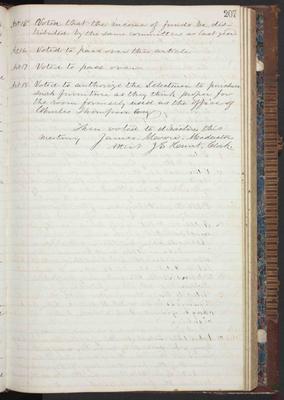 207
Art 15 Voted that the income of funds be dis
tributed by the same committees as last year
Art 16 Voted to pass over this article
Art 17 Voted to pass over
Art 18 Voted to authorize the Selectmen to purchase
such furniture as they think proper for
the room formerly used as the office of
Charles Thompson Esq
Then voted to dissolve this
meeting James Moderator
Attest J. E. Clerk